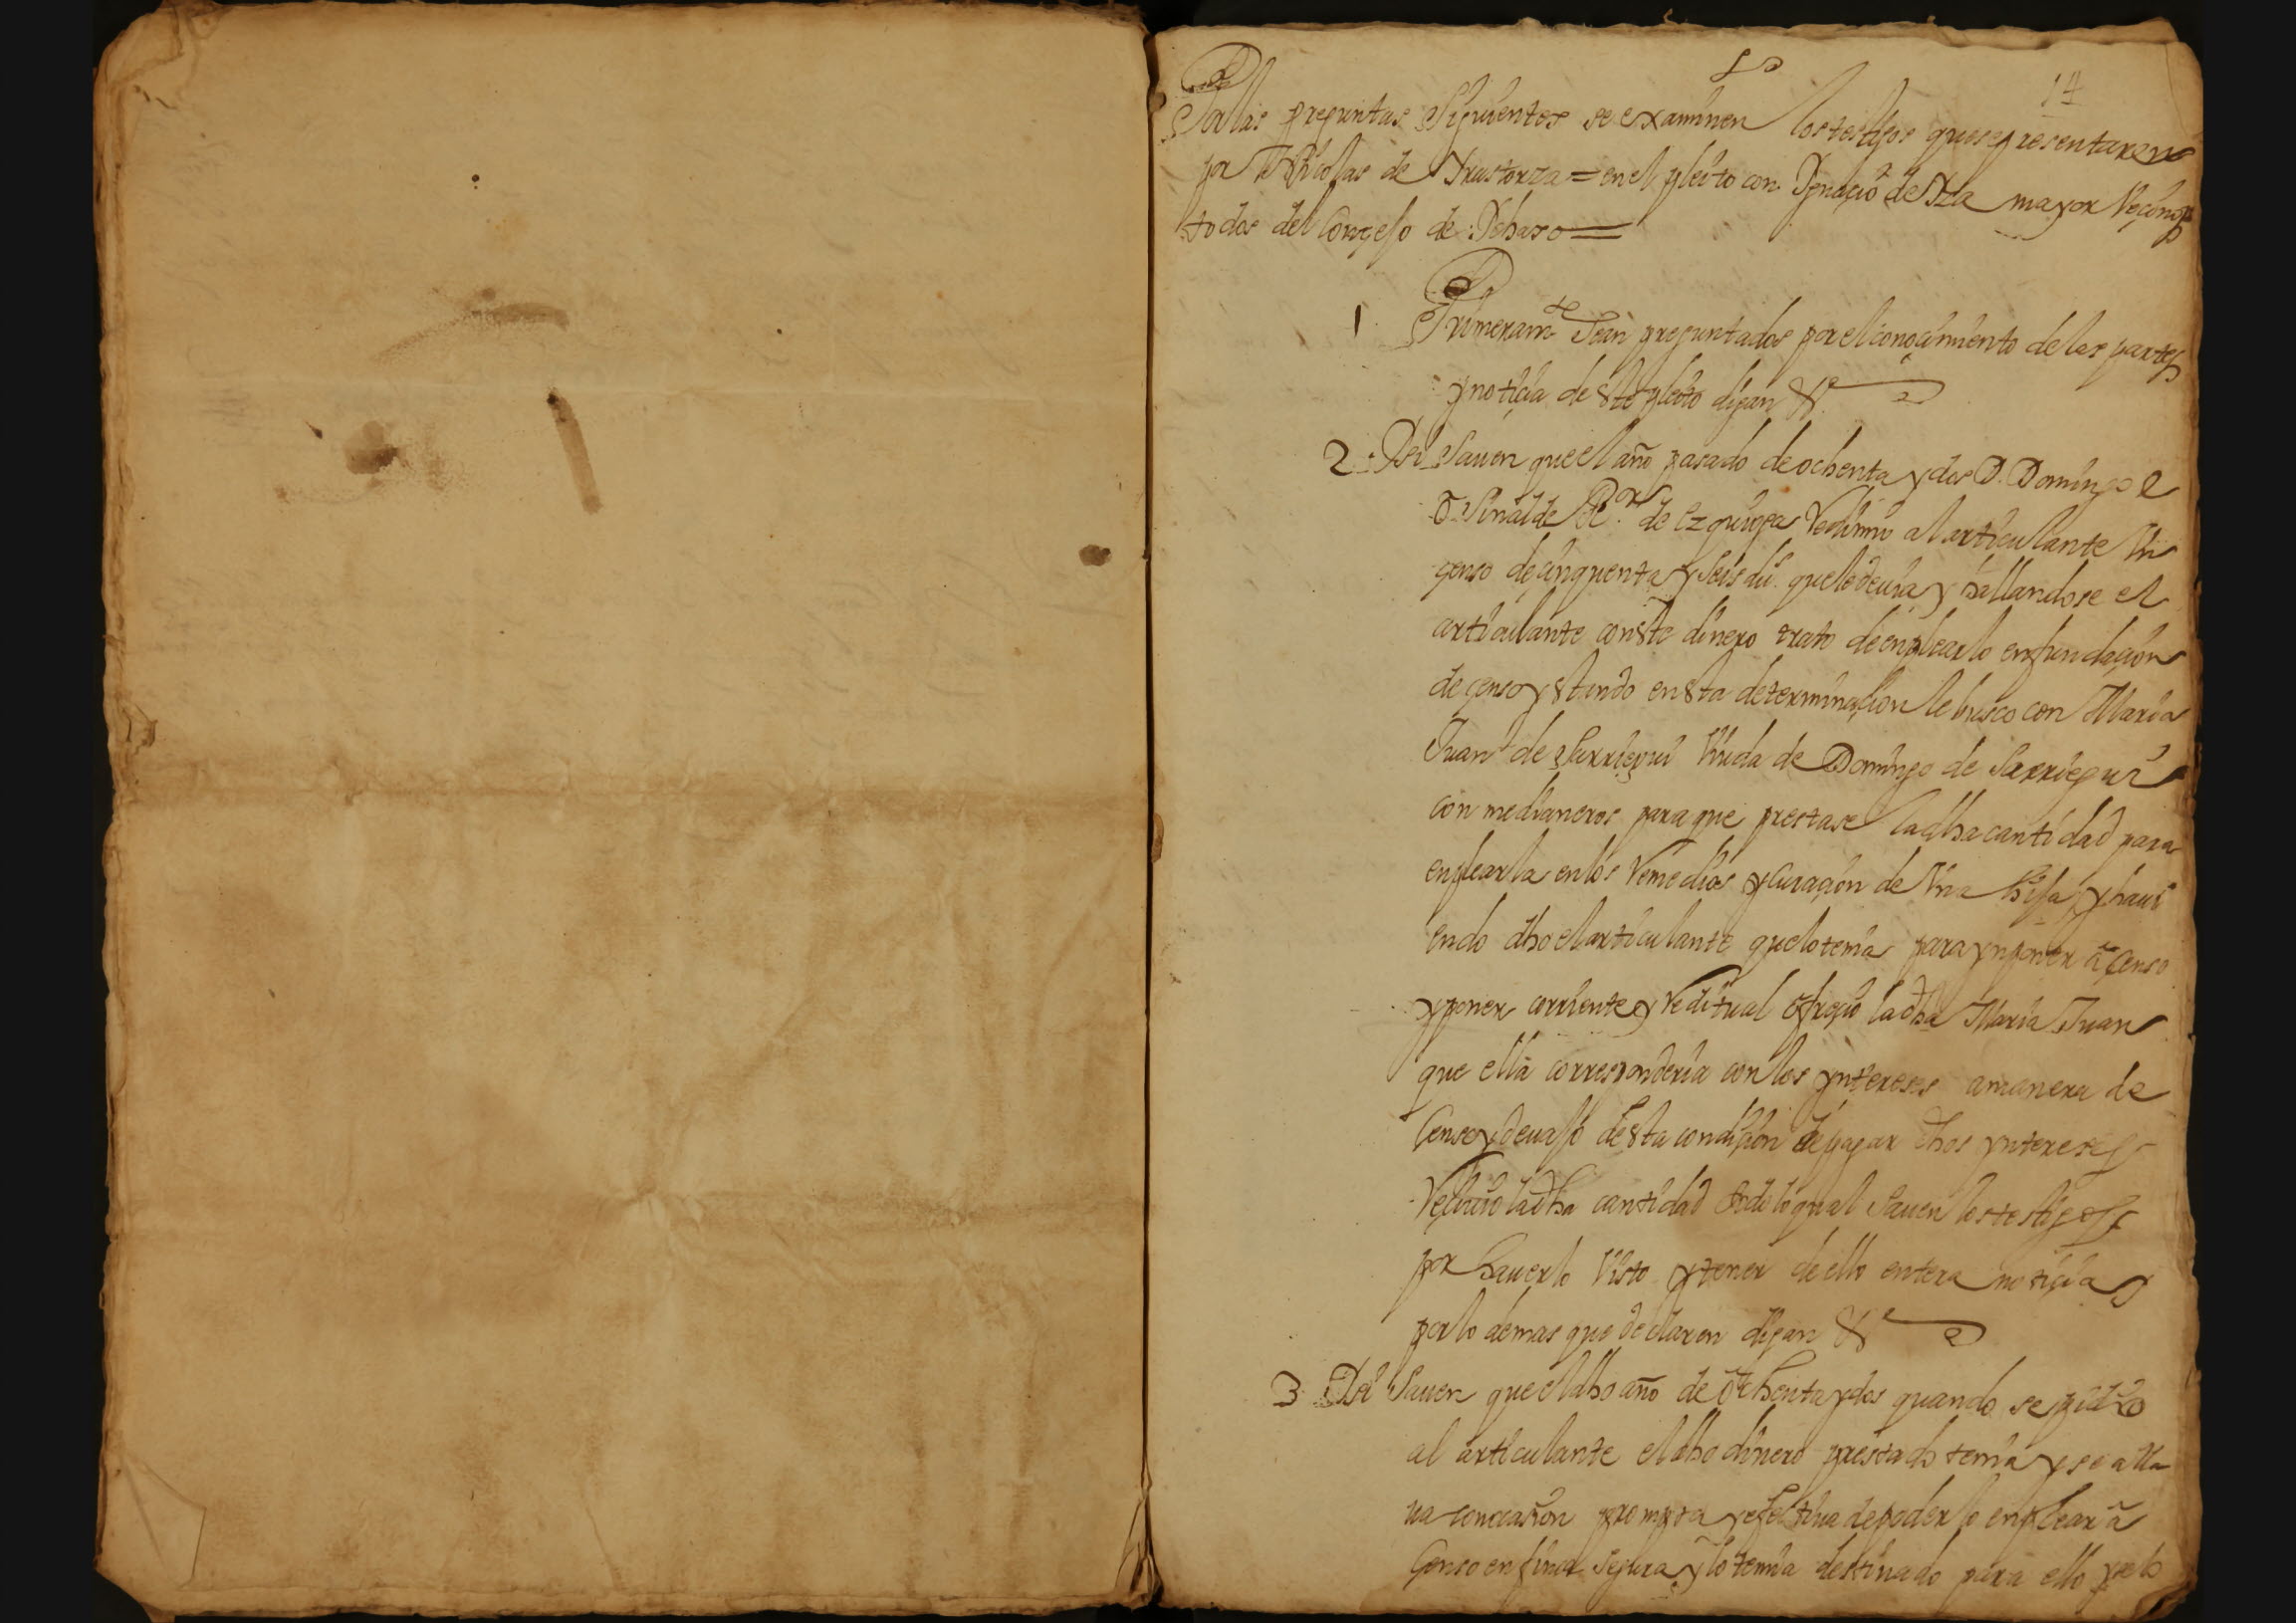 14
Por las preguntas siguientes se examinen los testigos que se presentaren
por Nicolas de Irastorza = en el pleito con Ignacio de Iza mayor Veçinos
todos del Conçejo de Ydiaso =
1 Primeramte sean preguntados por el conoçimiento de las partes
y notiçia deste pleito digan &
2 Yten si sauen que el año pasado de ochenta y dos D. Domingo
de Ezquioga Redimio al articulante Un
çenso de çinquenta y seis du.s que le deuia y hallandose el
articulante con ste dinero trato de enplearlo en fundaçion
de çenso y stando en sta determinaçion le busco con Maria
Juan de Sarriegui Viuda de Domingo de Sarriegui
con medianeros para que prestase la dha cantidad para
enplearla en los Remedios y Curaçion de Una hija, y haui
endo dho el articulante que lo tenia para ynponer a çenso
y poner corriente y Reditual ofreçio la dha Maria Juan
que ella corresponderia con los yntereses a manera de
Censo y deuajo desta condiçion de pagar dhos yntereses
Reçiuio la dha cantidad todo lo qual sauen los testigos
por hauerlo Visto y tener de ello entera notiçia y
por lo demas que declaren digan &
3 Yten si sauen que el dho año de ochenta y dos quando se pidio
al articulante el dho dinero prestado tenia y se alla
ua con ocasion prompta y efectiua de poderlo enplear a
Censo en finca segura y lo tenia destinado para ello y se lo